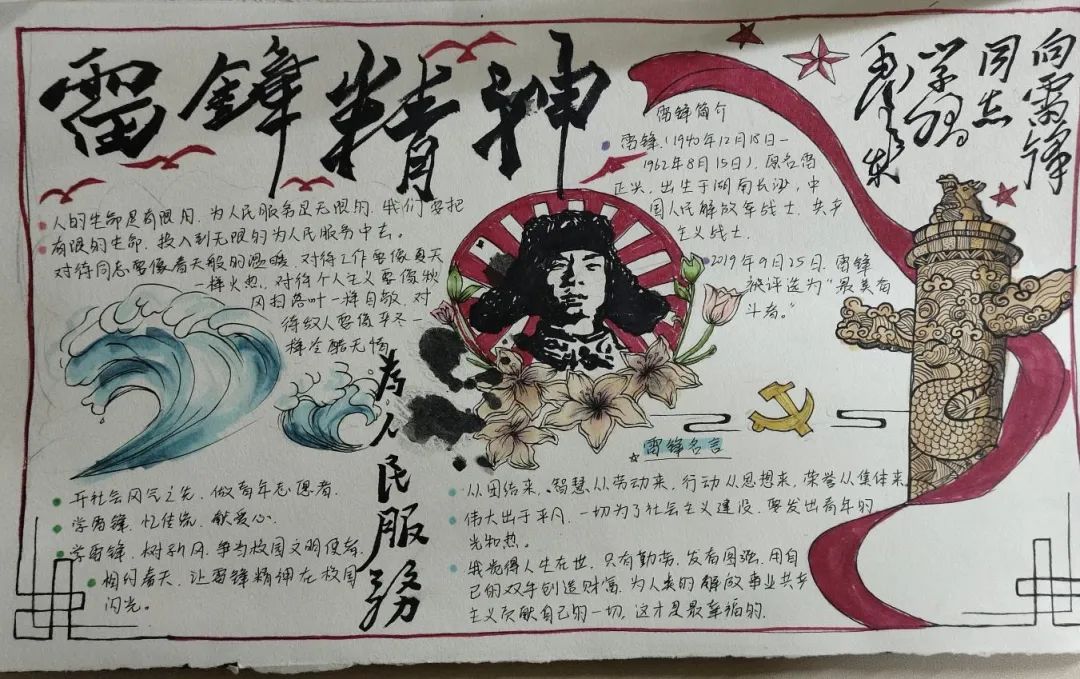 雷锋精神
向雷锋
同志
学习
毛泽东
雷锋简介
雷锋(1940年12月18日—
1962年8月15日),原名雷
正兴,出生于湖南长沙,中
国人民解放军战士,共产
主义战士.
2019年9月25日,雷锋
被评选为“最美奋
斗者。”
人的生命是有限的,为人民服务是无限的,我们要把
有限的生命,投入到无限的为人民服务中去。
对待同志要像春天般的温暖,对待工作要像夏天
一样火热,对待个人主义要像秋
风扫落叶一样 对
待敌人要像严冬一
样冷酷无情
为人民服務
开社会风气之先,做青年志愿者.
学雷锋,忆传统,献爱心.
学雷锋,树新风,争当校园文明使者.
相约春天,让雷锋精神在校园
闪光。
雷锋名言
从团结来,智慧从劳动来,行动从思想来,荣誉从集体来
伟大出于平凡,一切为了社会主义建设,要发出青年的
光和热。
我觉得人生在世,只有勤劳,发奋图强,用自
己的双手创造财富,为人类的解放事业共产
主义贡献自己的一切,这才是最幸福的.